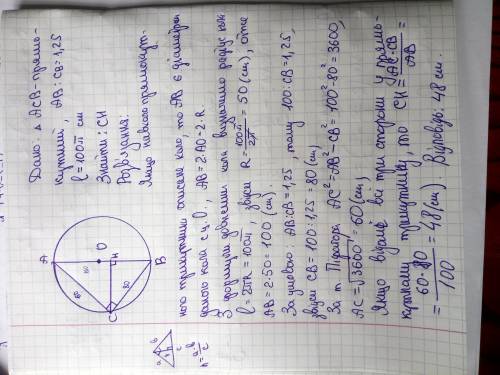 Дано: Δ ACB - прямо-
кутний, AB : CB = 1,25
l = 100π см
Знайти: CH
Розв'язання:
Якщо навколо прямокут-
ного трикутника описано коло, то AB є діаметром
даного кола з ц. O, AB = 2·AO = 2·R.
З формули довжини кола визначимо радіус кола
l = 2πR = 100π, звідси R = 100π/2π = 50 (cm), отже
AB = 2·50 = 100 (cm).
За умовою: AB:CB = 1,25, тому 100:CB = 1,25,
звідси CB = 100:1,25 = 80 (cm)
За т. Піфагора AC² = AB² - CB² = 100² - 80² = 3600,
AC = √3600 = 60 (cm)
Якщо відомі всі три сторони у прямо-
кутному трикутнику, то CH = AC·CB/AB =
= 60·80/100 = 48 (cm). Відповідь: 48 cm.
A
O
H
B
C
60
80
a
b
h
c
h = a·b/c